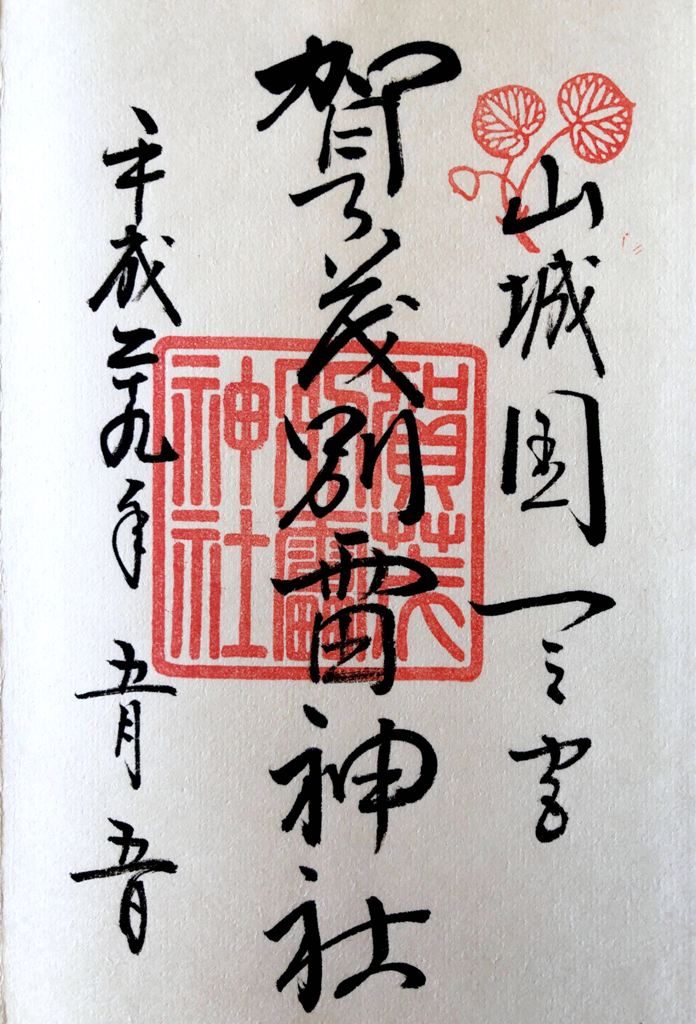 山城国一之宮
賀茂別雷神社
平成二十九年 五月 五日
賀茂
別雷
神社